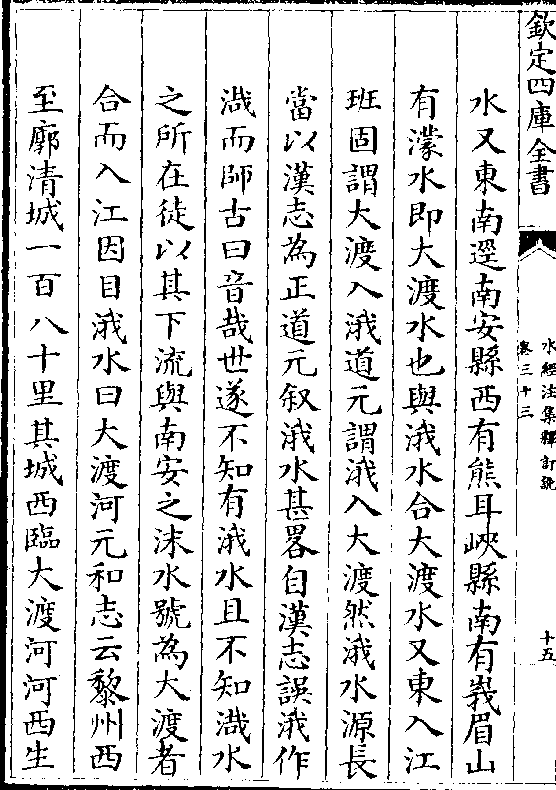 欽定四庫全書
水經注集釋訂訛
卷三十三
十五
水又東南逕南安縣西有熊耳峽縣南有峩眉山
有濛水即大渡水也與涐水合大渡水又東入江
班固謂大渡入涐道元謂涐入大渡然涐水源長
當以漢志為正道元叙涐水甚畧自漢志誤涐作
渽而師古曰音哉世遂不知有涐水且不知渽水
之所在徒以其下流與南安之沫水號為大渡者
合而入江因目涐水曰大渡河元和志云黎州西
至廓清城一百八十里其城西臨大渡河河西生